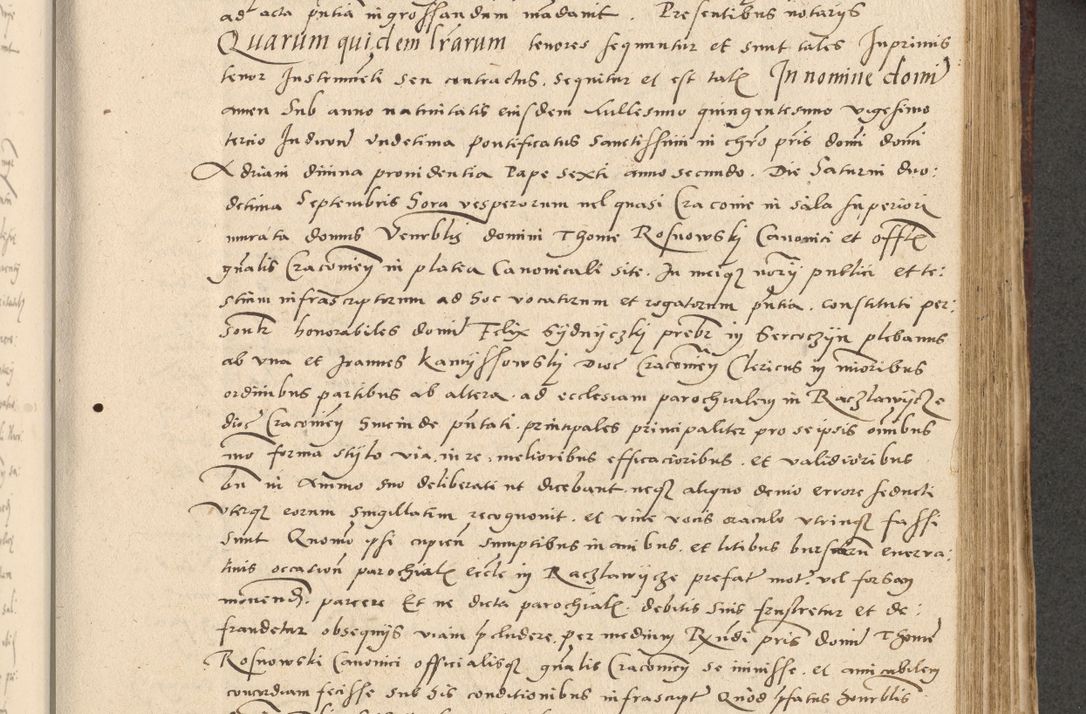 ad acta pntia ingrossandum mādanit . Presentibus notarijs
Quarum quidem lrarum tenores sequuntur et sunt tales Inprimis
tenor Instrumēti seu contractus . sequitur et est talis In nomine domi
amen Sub anno natiuitatis eiusdem Millesimo quingentesimo vigesimo
tercio Indicon vndetima pontificatus sanctissimi in chro pris domi domi
Adriani diuina prouidentia Pape sexti anno secundo . Die Saturni duo:
detima Septembris hora vesperorum uel quasi Cracouie in sala superiori
murata domus Venrblis domini Thome Rosnowskij Canonici et offtis
gnalis Cracouien in platea Canonicali site . In meiqz norij publici et te:
stium infrascriptorum ad hoc vocatorum et rogatorum pntia . constituti per:
sonlr honorabiles domi Felix Sydnyczkij prebr in Sercoczyn plebanus
ab vna et Joannes Kamyssowskij Dioc Cracouien Clericus in minoribus
ordinibus partibus ab altera . ad ecclesiam parochialem in Raczlawycze
dioc Cracouien Smeinde pntati . principales principaliter pro seipsis omibus
mo forma stijlo via , iure , melioribus efficacioribus . et validioribus
bn in Animo suo deliberati ut dicebant . neqz aliquo deuio errore seducti
vterqz eorum singillatim recognouit . et viue vocis oraculo vtrinqz fassi
sunt Quomo ipsi cupien sumptibus inanibus . et litibus bursarū euerra:
tiuis occasion parochialis eccle in Raczlawycze prefat mot . vel forsan
mouend . parcere Et ne dicta parochialis . debitis suis frustretur et de:
frandetur obsequijs viam pcludere , per medium Rndi pris domi Thome
Rosnowski Canonici officialisqz gnalis Cracouien se iniuisse . et amicabilem
concordiam fecisse sub his conditionibus infrascript Quod pfatus honrblis